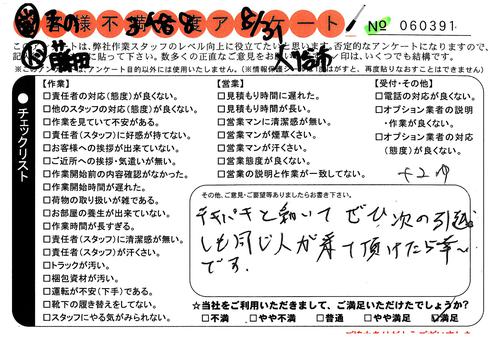 お客様不満足度アンケート! 8/31
No 060391
このアンケートは、弊社作業スタッフのレベル向上に役立てたいと思います。否定的なアンケートになりますので、
数多くのご正直なご意見をお
いくつでも結構です。
※このアンケートは、アンケート目的以外には使用いたしません。
チェックリスト
【作業】
□責任者の対応(態度)が良くない。
□他のスタッフの対応(態度)が良くない。
□作業を見ていて不安がある。
□責任者(スタッフ)に好感が持てない。
□お客様への挨拶が出来ていない。
□ご近所への挨拶・気遣いが無い。
□作業開始前の内容確認がなかった。
□作業開始時間が遅れた。
□荷物の取り扱いが雑である。
□お部屋の養生が出来ていない。
□作業時間が長すぎる。
□責任者(スタッフ)に清潔感が無い。
□責任者(スタッフ)が汗くさい。
□トラックが汚い。
□梱包資材が汚い。
□運転が不安(下手)である。
□靴下の履き替えをしてない。
□スタッフにやる気がみられない。
【営業】
□見積もり時間に遅れた。
□見積もり時間が長い。
□営業マンに清潔感が無い。
□営業マンが煙草くさい。
□営業マンが汗くさい。
□営業態度が良くない。
□営業の説明と作業が一致してない。
【受付・その他】
□電話の対応が良くない。
□オプション業者の説明
・作業が良くない。
□オプション業者の対応
(態度)が良くない。
その他、ご意見・ご要望等ありましたらお書き下さい。
テキパキと動いてぜひ次の引越
しも同じ人が来て頂けたら幸い
です。
☆当社をご利用いただきまして、ご満足いただけたでしょうか?
□不満 □やや不満 □普通 □やや満足 ☑満足